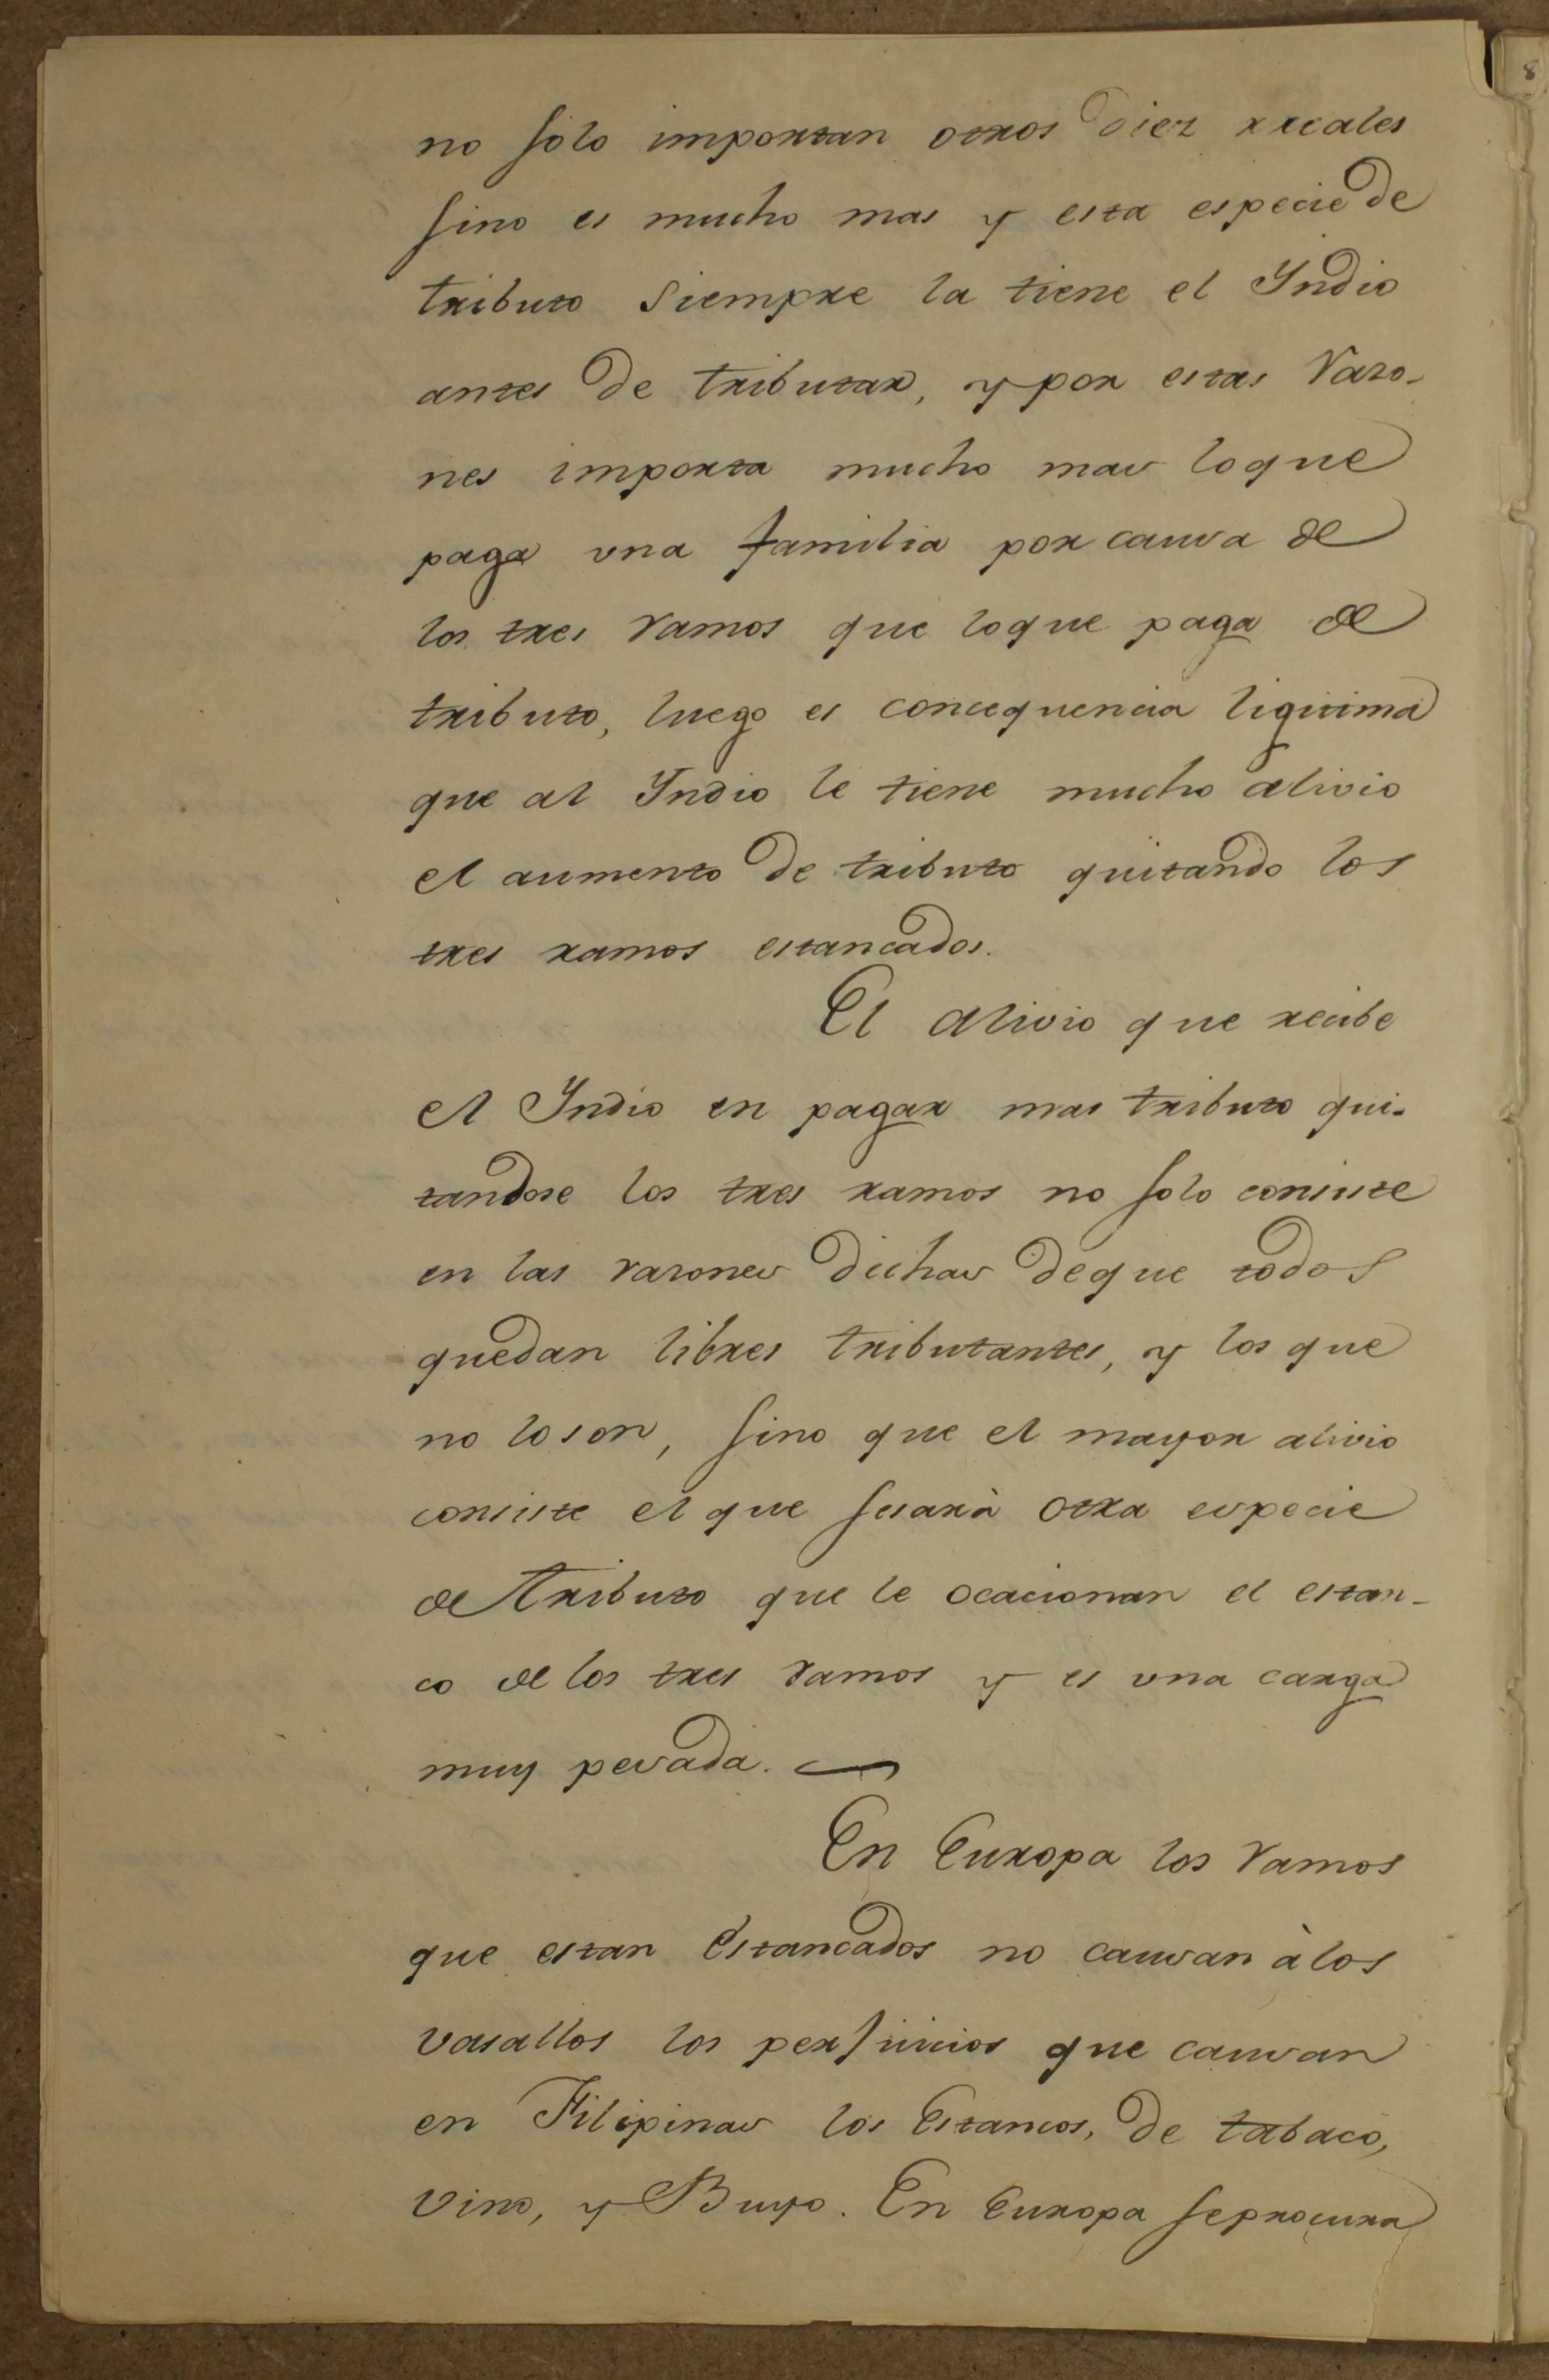 no solo importan otros diez rreales
sino es mucho mas y esta especie de
tributo siempre la tiene el Yndio
antes de tributar, y por estas razo-
nes importa mucho mas loque
paga una familia por causa de
los tres ramos que loque paga de
tributo, luego es concequencia ligitima
que al Yndio le tiene mucho alivio
el aumento de tributo quitando los
tres ramos estancados.
El alivio que recibe
el Yndio en pagar mas tributo qui-
tandose los tres ramos no solo consiste
en las razones dichas deque todos
quedan libres tributantes, y los que
no loson, sino que el mayor alivio
consiste el que sesará otra especie
de tributo que le ocacionan el estan-
co de los tres ramos y es una carga
muy pesada.
En Europa los ramos
que estan Estancados no causan à los
vasallos los perjuicios que causan
en Filipinas los Estancos, de tabaco,
vino, y Buyo. En Europa seprocura
8